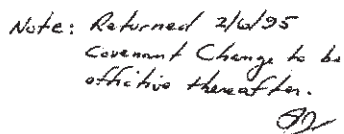 Note: Returned 2/6/95
Covenant Change to be
effictive thereafter.